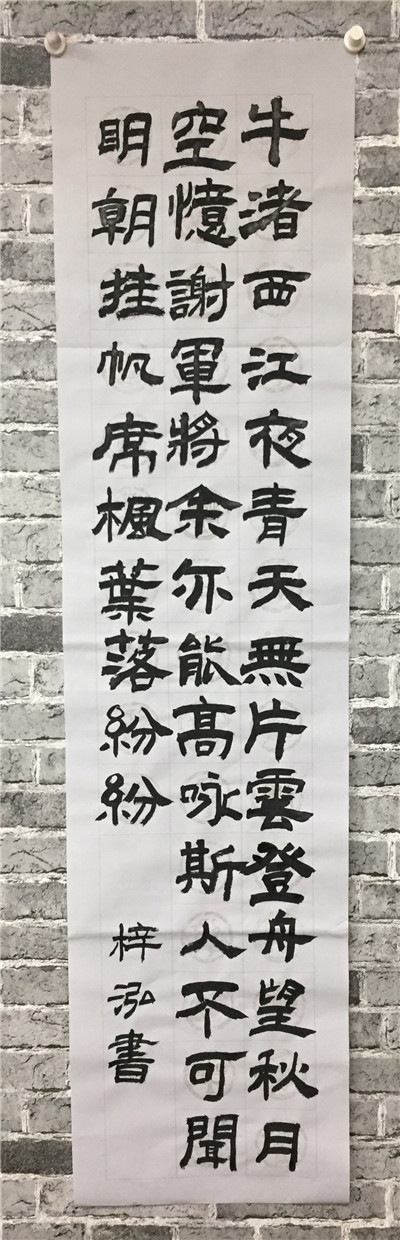 牛渚西江夜青天無片雲登舟望秋月
空憶謝軍將余亦能高咏斯人不可聞
明朝挂帆席楓葉落紛紛
梓泓書